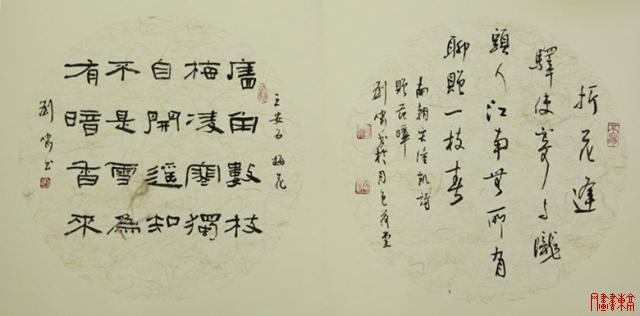 折花逢
驛使寄与隴
頭人江南無所有
聊贈一枝春
南朝宋陸凱詩
贈范曄
劉書於月色堂
王安石 梅花
廧角數枝
梅凌寒獨
自開遥知
不是雪為
有暗香來
劉書